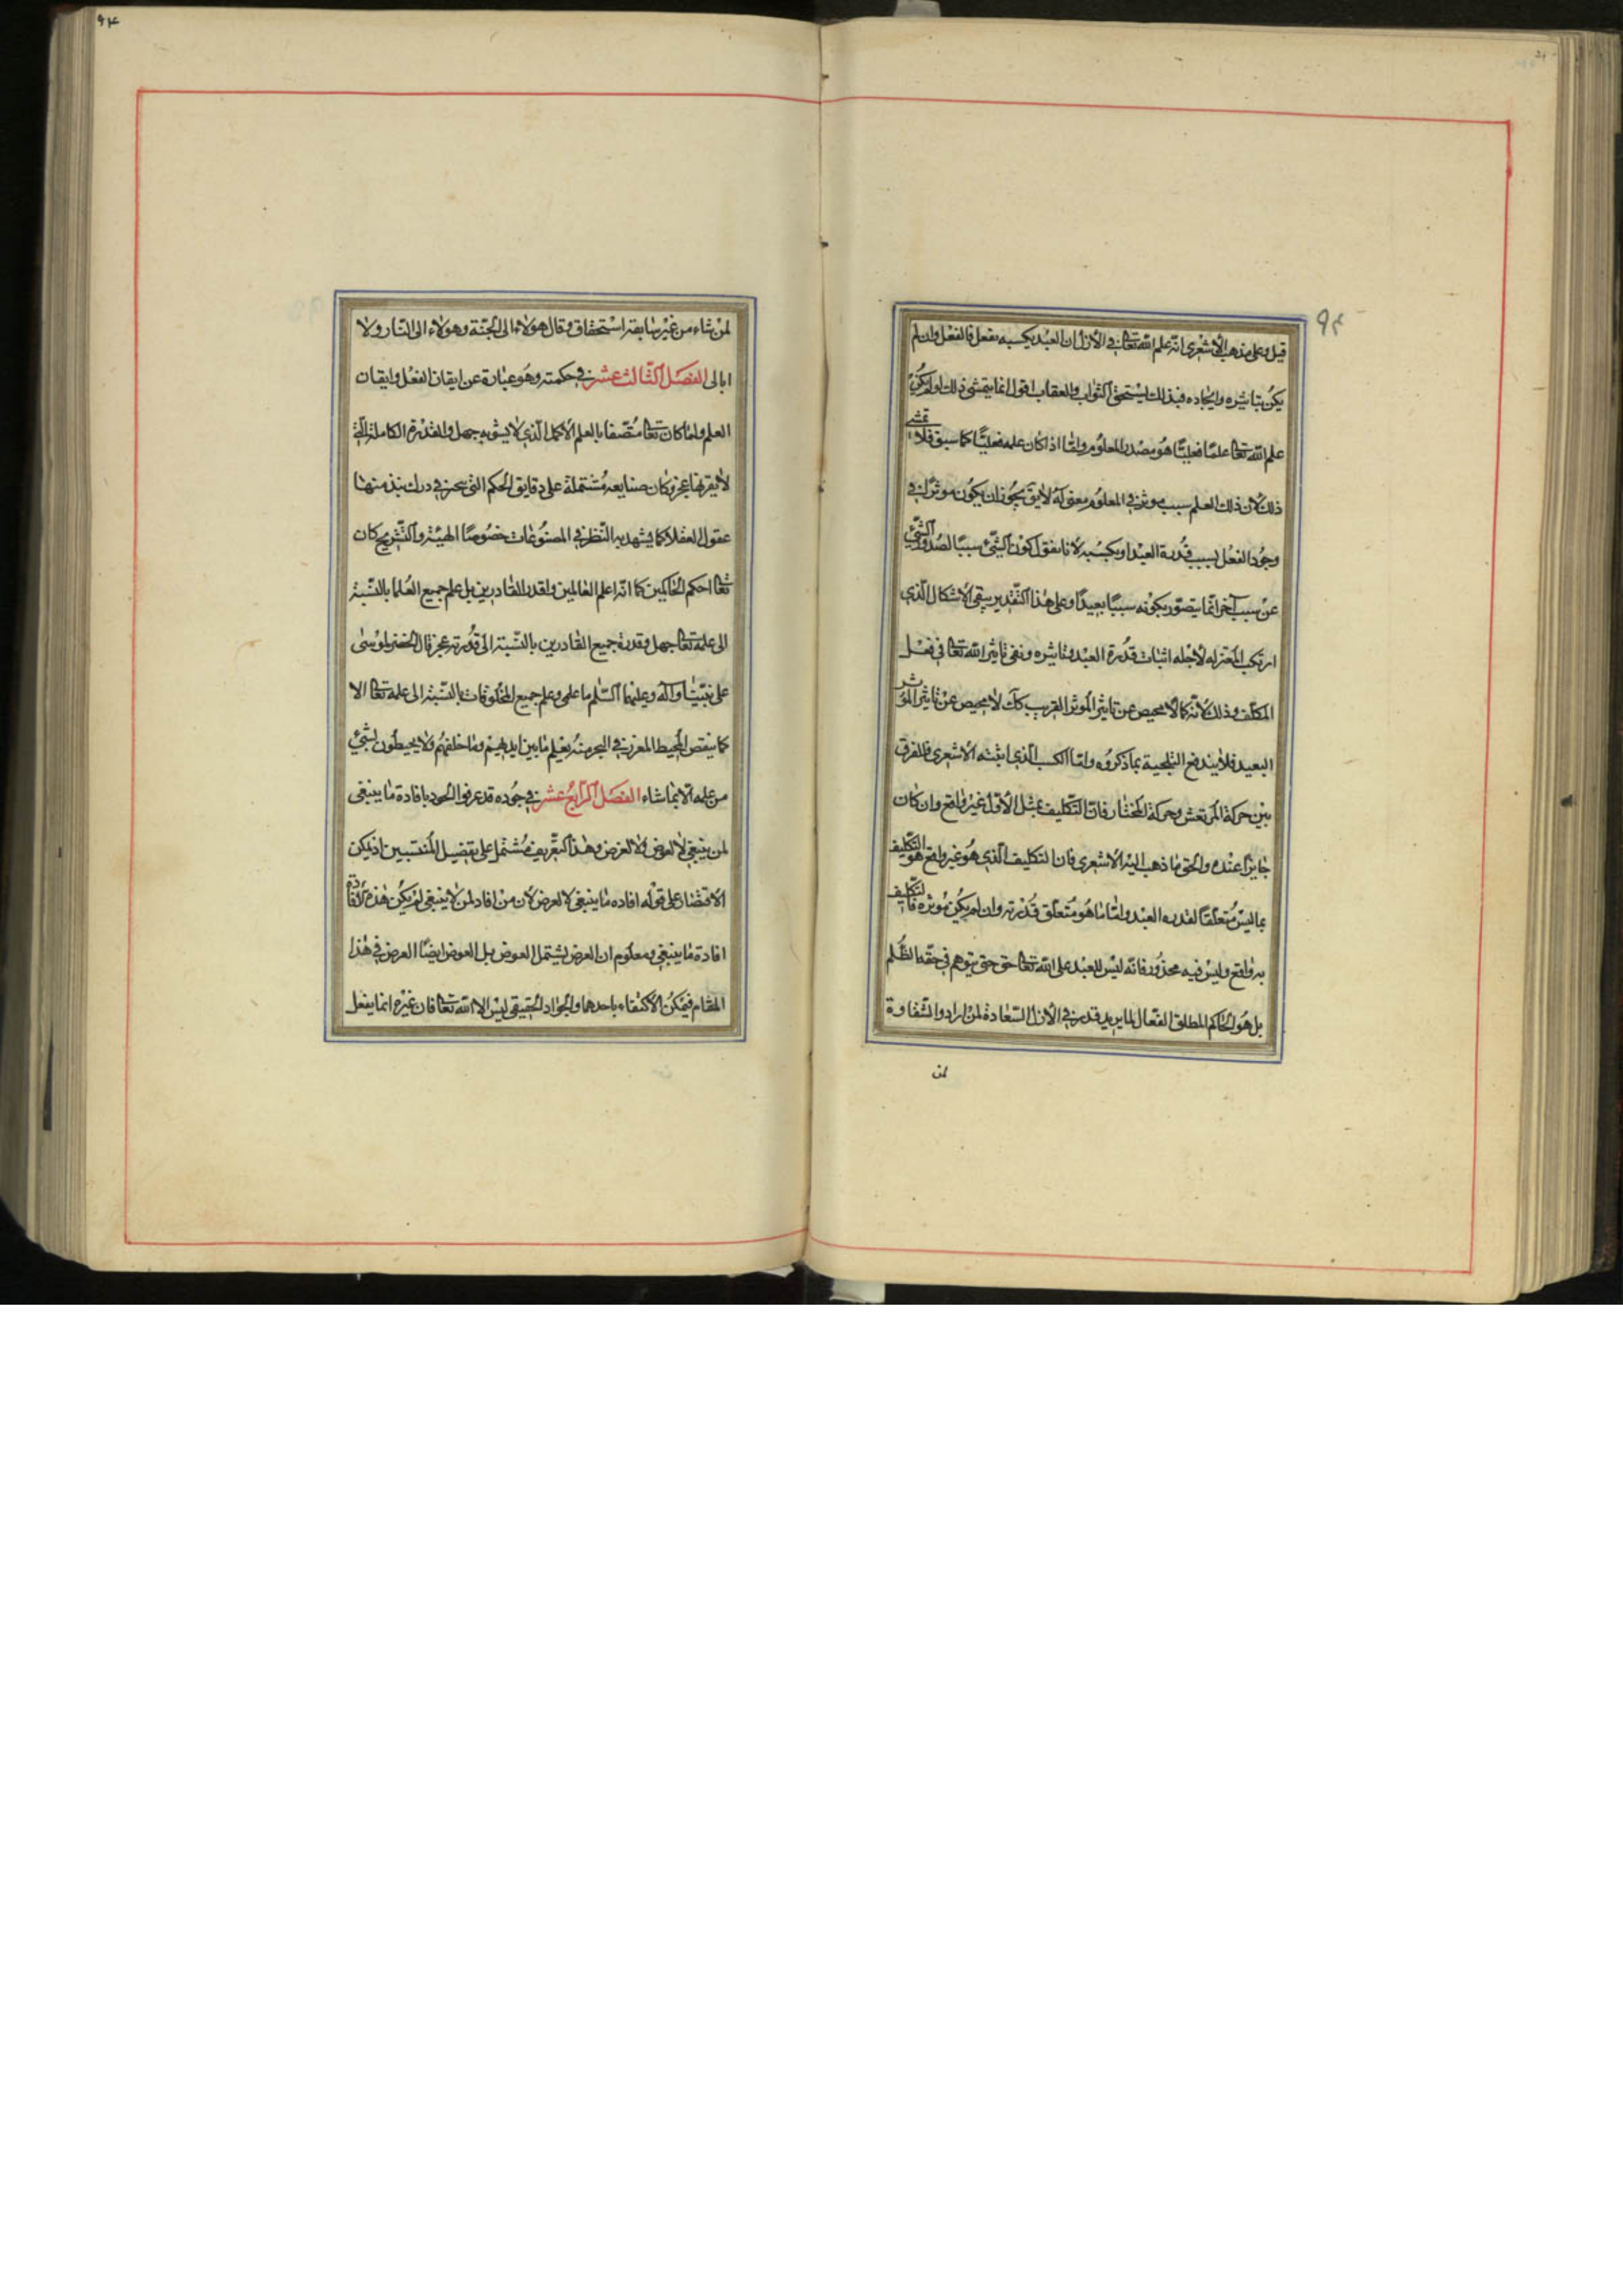 ٩٣
قيل وعلى مذهب الأشعرى انه علم الله تعالى فى الأزل ان العبد يكسبه بفعل فالفعل وان لم
يكن بتاثيره وايجاده فبذلك يستحق الثواب والعقاب اقول انما يتمشى ذلك لو لم يكن
علم الله تعالى علمًا فعليًّا هو مصدر المعلوم وامّا اذا كان علمه فعليًّا كما سبق فلا يتمشى
ذلك لان ذلك العلم سبب موثر فى المعلوم ومعقوله لا يق يجوز ان يكون موثرا فى
وجود الفعل بسبب قدرة العبد او بكسبه لانا نقول كون الشئ سببًا لصدور الشئ
عن سبب آخر انما يتصور بكونه سببًا بعيدًا وعلى هذا التقدير يبقى الاشكال الذى
ارتكب المعتزله لاجله اثبات قدرة العبد وتاثيره ونفى تاثير الله تعالى فى فعل
المكلف وذلك لانه كما لا محيص عن تاثير الموثر القريب كك لا محيص عن تاثير الموثر
البعيد فلا يندفع القبحية بما ذكروه وامّا الكسب الذى اثبته الأشعرى فالفرق
بين حركة المرتعش وحركة المختار فان التكليف بمثل الأول غير واقع وان كان
جايزا عنده والحق ما ذهب اليه الأشعرى فان التكليف الذى هو غير واقع هو التكليف
بما ليس متعلقًا لقدره العبد وامّا ما هو متعلق قدرته وان لم يكن موثره فالتكليف
به واقع وليس فيه محذور فانه ليس للعبد على الله تعالى حق حتى يتوهم فى حقه الظلم
بل هو الحاكم المطلق الفعال لما يريد قدر فى الأزل السعادة لمن اراد والشقاوة
لمن
٩٤
لمن شاء من غير سابقة استحقاق وقال هولاء الى الجنة وهولاء الى النار ولا
ابالى الفصل الثالث عشر فى حكمته وهو عبارة عن ايقان الفعل وايقان
العلم ولما كان تعالى متصفا بالعلم الأكمل الذى لا يشوبه جهل والقدرة الكاملة التى
لا يقربها عجز وكان صنايعه مشتملة على دقايق الحكم التى يعجز فى درك نبذ منها
عقول العقلا كما يشهد به النظر فى المصنوعات خصوصًا الهيئة والتشريح كان
تعالى احكم الحاكمين كما انه اعلم العالمين واقدر القادرين بل علم جميع العلما بالنسبة
الى علمه تعالى جهل وقدرة جميع القادرين بالنسبة الى قدرته عجز قال الخضر لموسى
على نبينا وآله وعليهما السلم ما علمى وعلم جميع المخلوقات بالنسبة الى علمه تعالى الا
كما ينقص المحيط المغرز فى البحر منه يعلم ما بين ايديهم وما خلفهم ولا يحيطون بشئ
من علمه الا بما شاء الفصل الرابع عشر فى جوده قد عرفوا الجود بافادة ما ينبغى
لمن ينبغى لا لعوض ولا لغرض وهذا التعريف مشتمل على تفصيل المنتسبين اذ يمكن
الاقتصار على قوله افاده ما ينبغى لا لعرض لان من افاد لمن لا ينبغى لم يكن هذه الافادة
افادة ما ينبغى ومعلوم ان الغرض يشتمل العوض بل العوض ايضًا الغرض فى هذا
المقام فيمكن الاكتفاء باحدهما والجواد الحقيقى ليس الا الله تعالى فان غيره انما يفعل